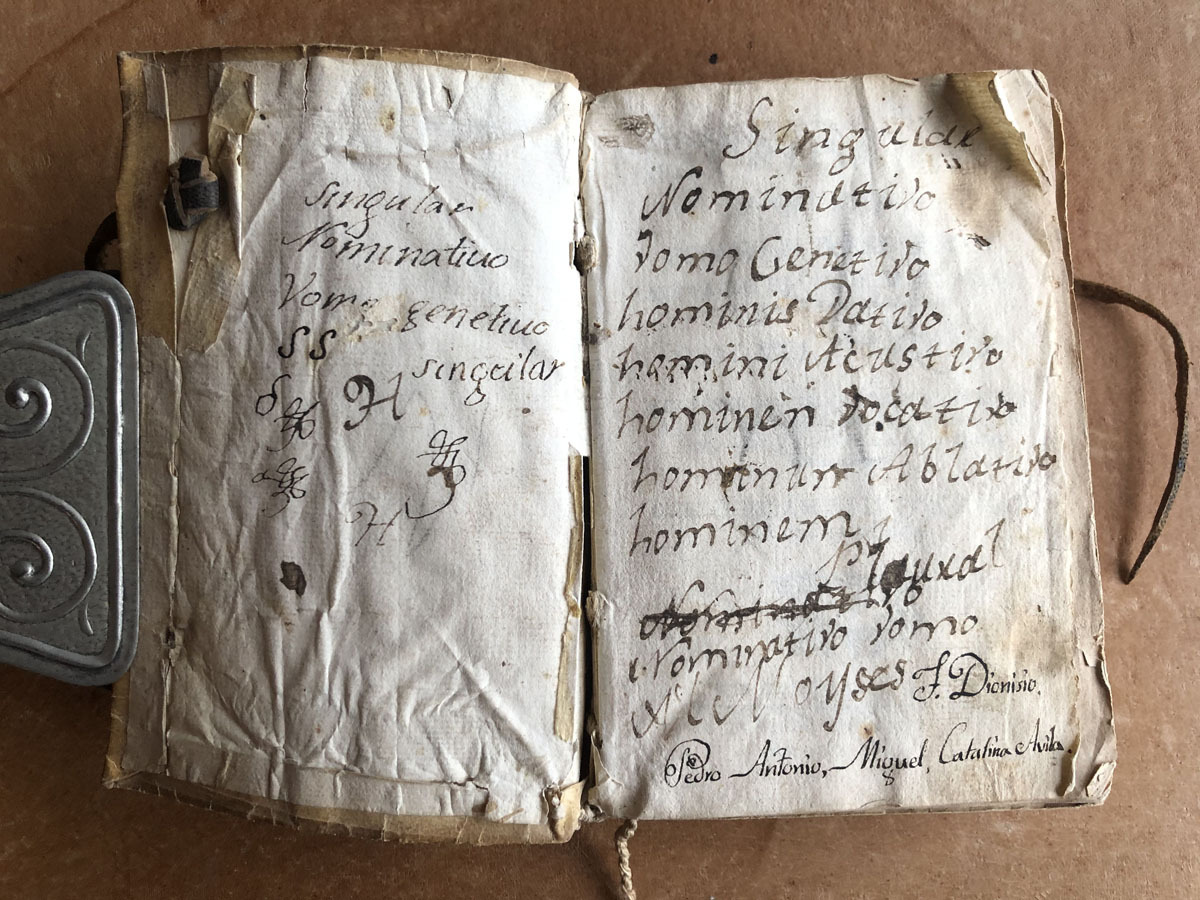 singular
Nominatiuo
Vomo genetiuo
SS
singcilar
H
H
Singular
Nominativo
vomo Genetivo
hominis Dativo
homini Acustivo
hominen vocativo
hominun Ablativo
hominem
Plaural
Nominativo
Nominativo vomo
Moyses F. Dionisio.
Pedro Antonio, Miguel, Catalina Avila.